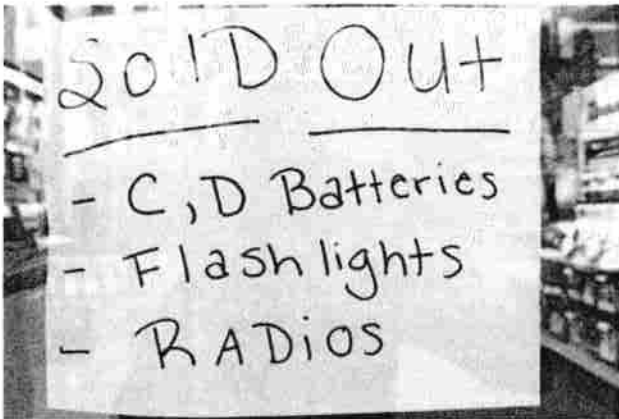 SolD Out
- C, D Batteries
- Flashlights
- RADiOS